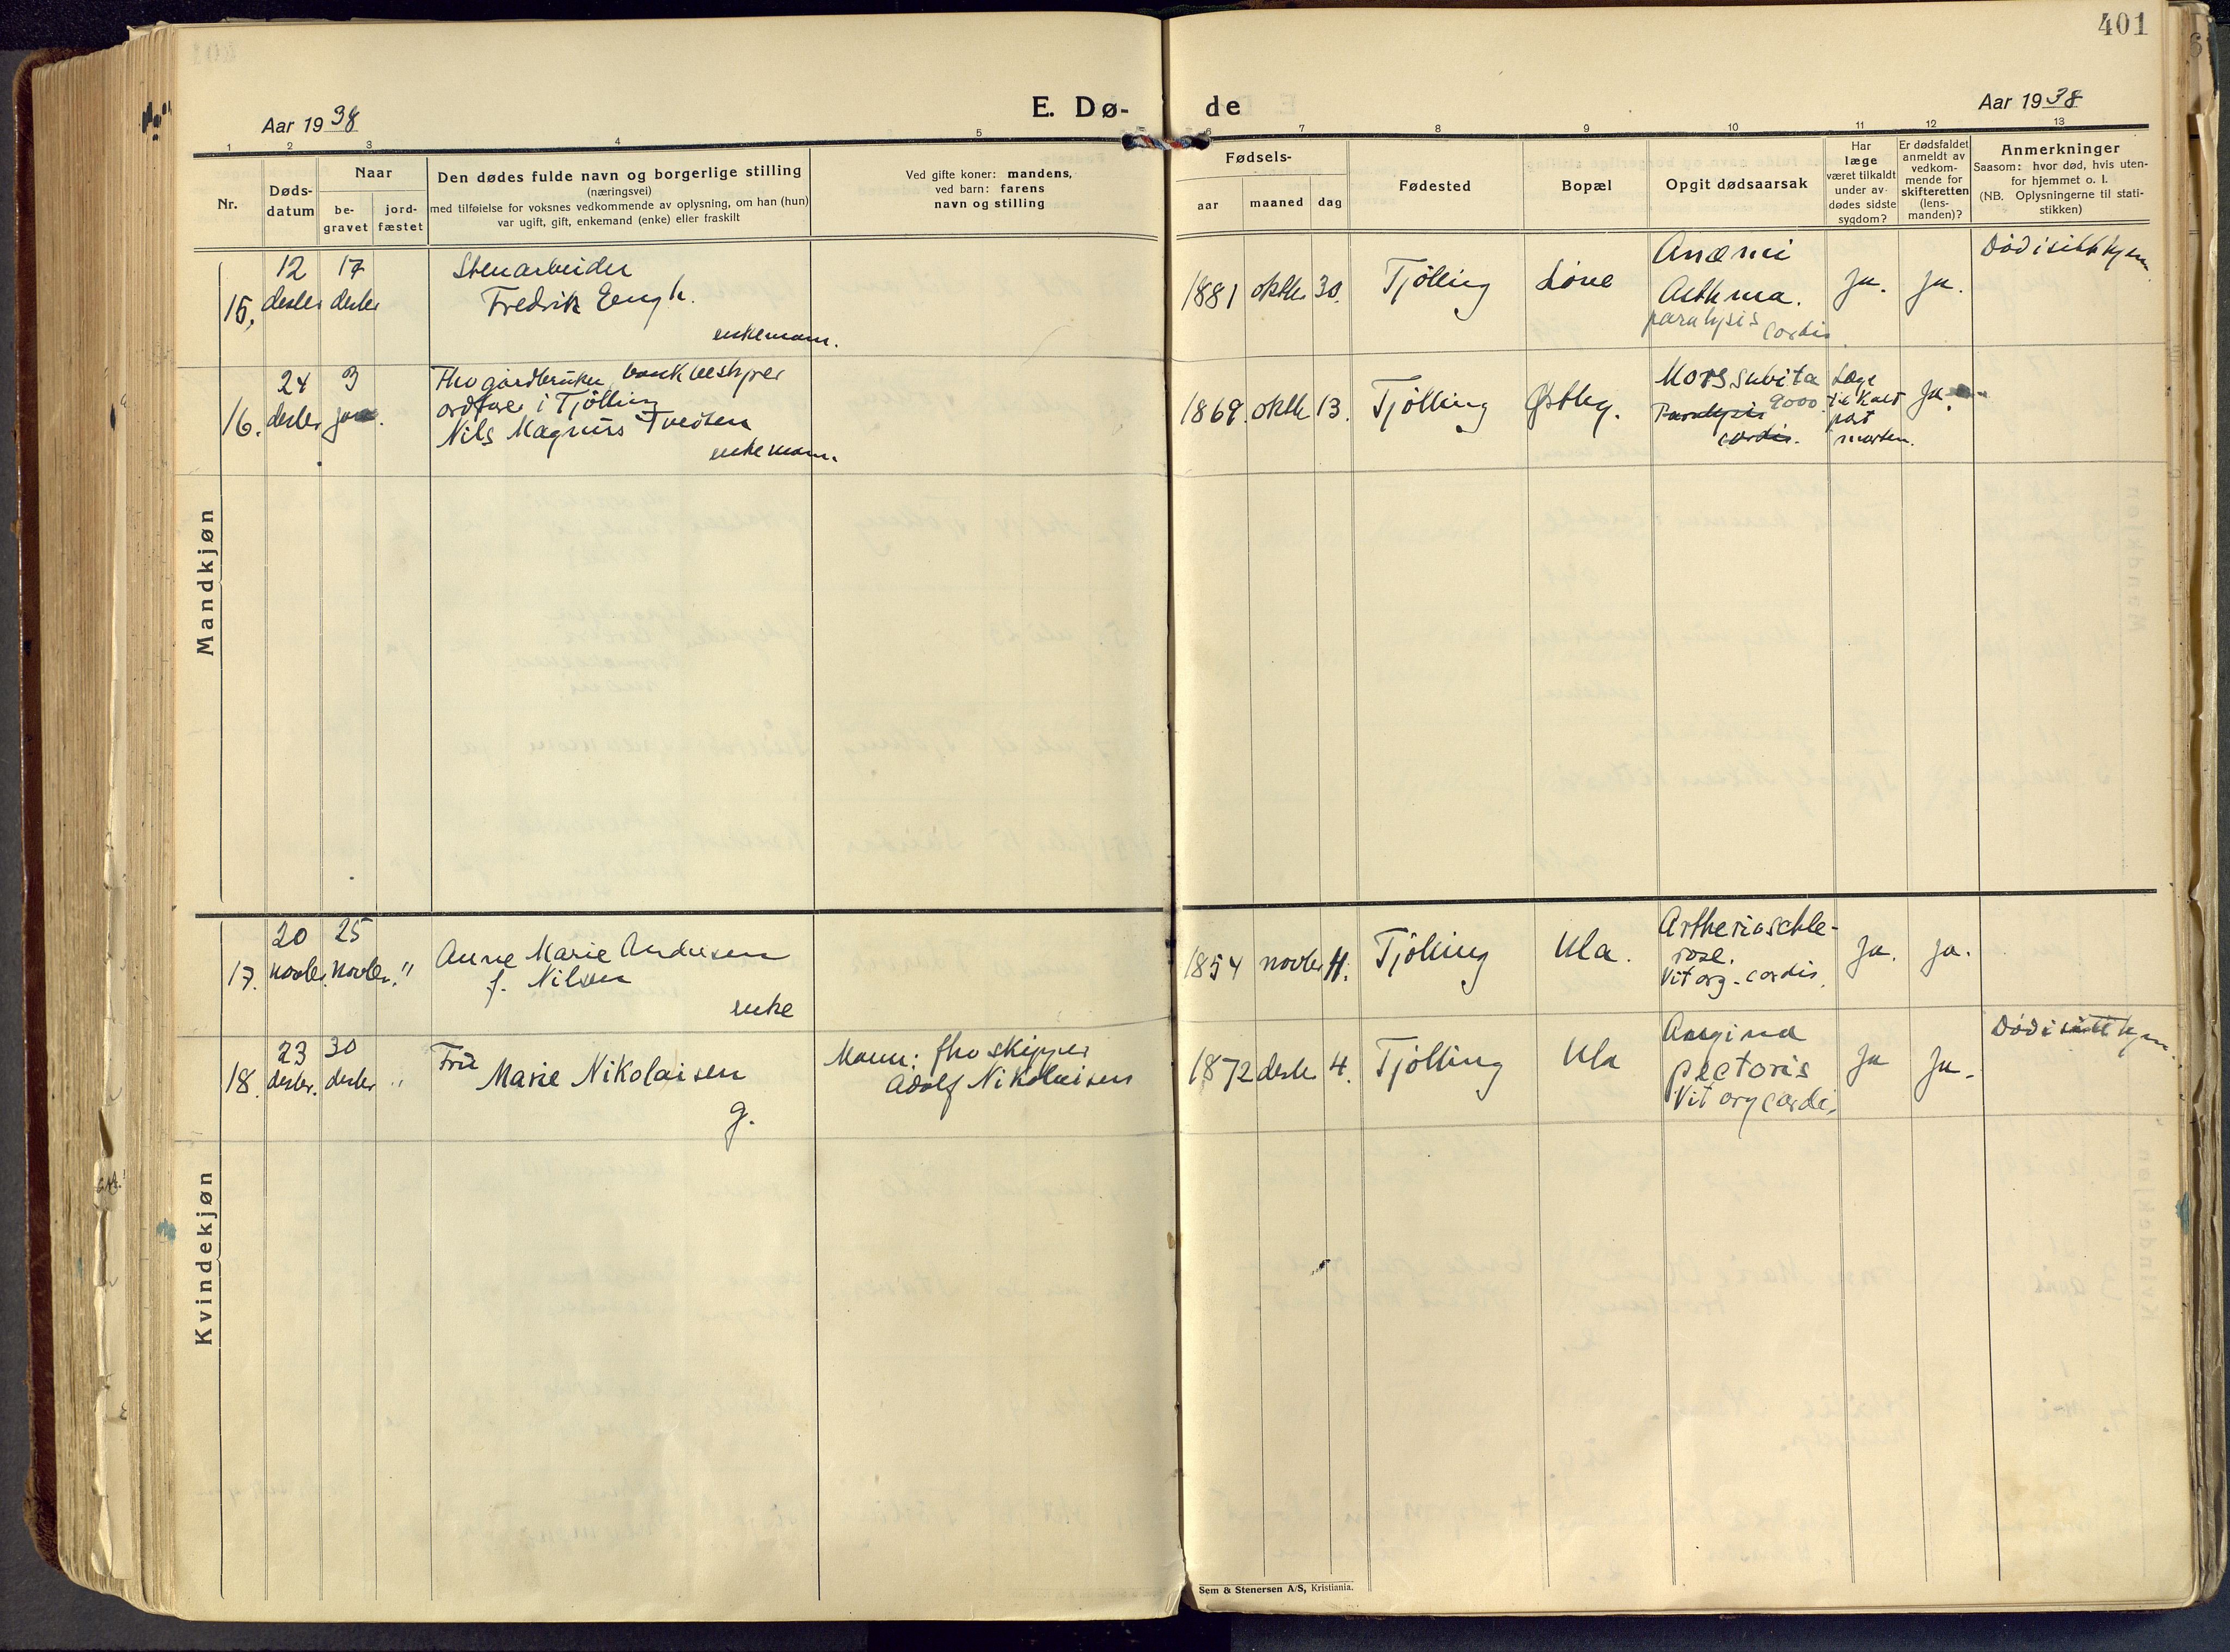 401
Aar 1938
E. Dø-
de
Aar 1938
1 2 3 4 5 6 7 8 9 10 11 12 13
Nr.
Døds-
datum
Naar
be-
gravet
jord-
fæstet
Den dødes fulde navn og borgerlige stilling
(næringsvei)
med tilføielse for voksnes vedkommende av oplysning, om han (hun)
var ugift, gift, enkemand (enke) eller fraskilt
Ved gifte koner: mandens,
ved barn: farens
navn og stilling
Fødsels-
aar
maaned
dag
Fødested
Bopæl
Opgit dødsaarsak
Har
læge
været tilkaldt
under av-
dødes sidste
sygdom?
Er dødsfaldet
anmeldt av
vedkom-
mende for
skifteretten
(lens-
manden)?
Anmerkninger
Saasom: hvor død, hvis uten-
for hjemmet o. l.
(NB. Oplysningerne til stati-
stikken)
Mandkjøn
15.
12
desbr
17
desbr
Stenarbeider
Fredrik Engh.
enkemann.
1881 oktbr 30.
Tjølling
Løve
Anæmi
Asthma.
paralysis
cordis.
Ja.
Ja.
Død i sitt hjem.
16.
24
desbr
3
jan.
Fhv gårdbruker, bankbestyrer
ordfører i Tjølling
Nils Magnus Tvedten
enkemann.
1869. oktbr 13.
Tjølling
Østby.
Mors subita
9000.
Paralysis
cordis.
Læge
tilkalt
post
mortem.
Ja.
Kvindekjøn
17.
20
novbr.
25
novbr.
"
Anne Marie Andresen
f. Nilsen
enke
1854 novbr 11.
Tjølling
Ula.
Artherioschle-
rose.
Vit org. cordis.
Ja.
Ja.
18.
23
desbr.
30
desbr
"
Fru
Marie Nikolaisen
g.
Mann: fhv skipper
Adolf Nikolaisen
1872 desbr 4.
Tjølling
Ula
Angina
pectoris
Vit org cordis.
Ja
Ja.
Død i sitt hjem.
Sem & Stenersen A/S, Kristiania.